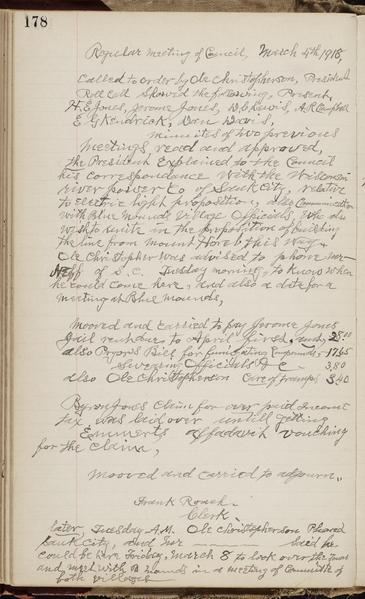 178
Regular Meeting of Council, March 5th 1918,
called to order by Ole Christopherson, President
Roll Call Showed the following, Present,
H.E. Jones, Jerome Jones, D.E. Lewis, A.R. Campbell
E G Kendrick, Dan Davis,
minuites of two previous
Meetings, read and approved,
the President Explained to the Council
his correspondance with the Wisconsin
river power Co of Sauk City, relative
to electric light proposition, also Communication
with Blue Mounds Village Officials, who also
wish to unite in the proposition of building
the line from Mount Horeb this Way.
Ole Christopher was advised to phone
of S.C. Tuesday morning, to know when
he could come here, and also a date for a
meeting at Blue Mounds,
Mooved and carried to pay Jerome Jones
Jail rent due to April first, 25.00
also Pryors Bill for fumigating Compounds, 17.65
Swearing Officials &c 3.80
also Ole Christopherson Care of tramps 3.40
Byron Jones claim for over paid Income
tax was laid over untill getting
affadavit vouching
for the claim,
Mooved and carried to adjourn.
Frank Roach
Clerk
later, Tuesday A.M. Ole Christopherson Phoned
Sauk City, and said he
could be here Friday, March 8 to look over the
and meet with B Mounds in a meeting of Committe of
both villages